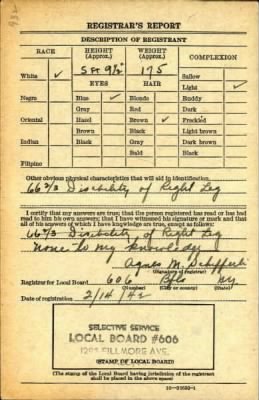 REGISTRAR'S REPORT
DESCRIPTION OF REGISTRANT
RACE HEIGHT (Approx.) WEIGHT (Approx.) COMPLEXION
White ✓ 5 ft 9½ 175 Sallow
EYES HAIR Light ✓
Negro Blue ✓ Blonde Ruddy
Gray Red Dark
Oriental Hazel Brown ✓ Freckled
Brown Black Light brown
Indian Black Gray Dark brown
Bald Black
Filipino
Other obvious physical characteristics that will aid in identification
66 2/3 Disability of Right Leg
I certify that my answers are true; that the person registered has read or has had
read to him his own answers; that I have witnessed his signature or mark and that
all of his answers of which I have knowledge are true, except as follows:
66 2/3 Disability of Right Leg
None to my knowledge
Agnes M.
(Signature of registrar)
Registrar for Local Board 606 Bflo NY
(Number) (City or county) (State)
Date of registration 2/14/42
SELECTIVE SERVICE
LOCAL BOARD #606
FILLMORE AVE.
(STAMP OF LOCAL BOARD)
(The stamp of the Local Board having jurisdiction of the registrant
shall be placed in the above space)